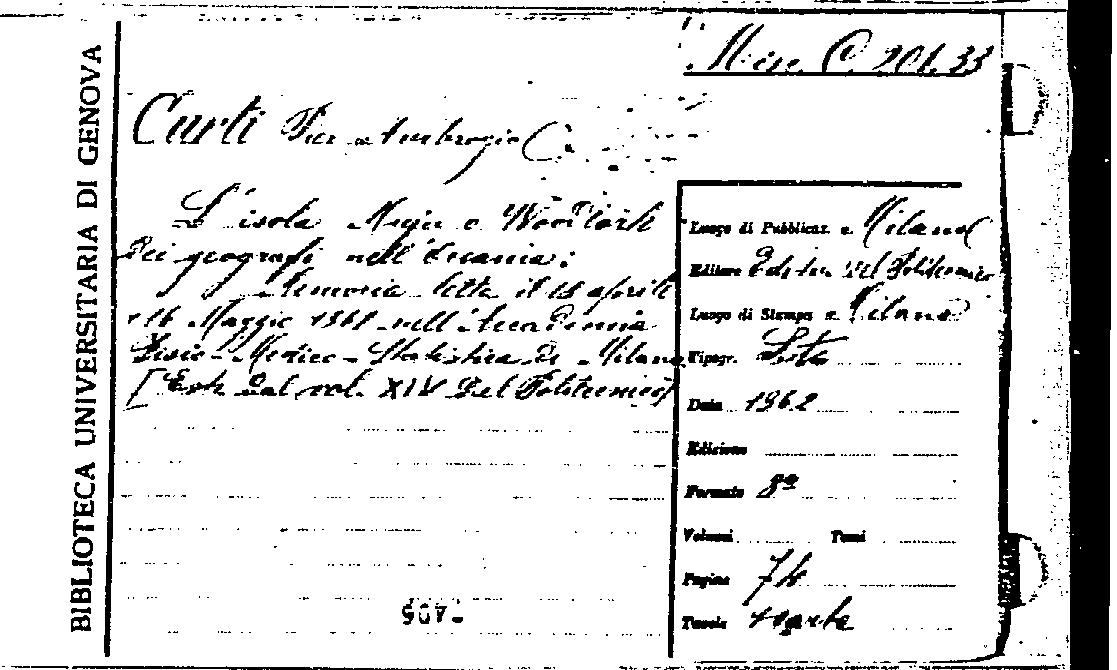 BIBLIOTECA UNIVERSITARIA DI GENOVA
Misc. C. 201.33
Curti Pier Ambrogio
L'isola Muju o Woodlark
dei geografi nell'Oceania:
Memoria letta il 18 aprile
e 16 Maggio 1861 nell'Accademia
Fisio-Medico-Statistica di Milano
[Estr. dal vol. XIV del Politecnico]
Luogo di Pubblicaz. Milano
Editore Editori del Politecnico
Luogo di Stampa Milano
Tipogr.
Data 1862
Edizione
Formato 8º
Volumi Tomi
Pagine
Tavole 1 carta